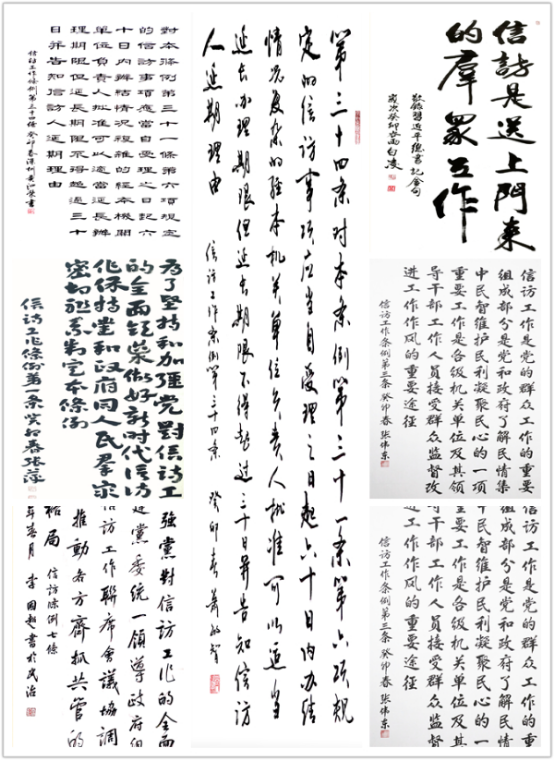 對本條例第三十一條第六項規定
的信訪事項應當自受理之日起六
十日内辦結情況複雜的經本機關
單位負責人批准可以適當延長辦
理期限但延長期限不得超過三十
日并告知信訪人延期理由
信访工作條例第三十四條 癸卯春深州黄書
第三十四条对本条例第三十一条第六项规
定的信访事项应当自受理之日起六十日内办结
情况复杂的经本机关单位负责人批准可以适当
延长办理期限但延长期限不得超过三十日并告知信访
人延期理由
信访工作条例第三十四条 癸卯春
信訪是送上門來
的羣眾工作
敬錄習近平總書記金句
歲次癸卯白凌
為了堅持和加彊党對信访工
的全面領導做好新时代信访
作保持黨和政府同人民羣众
密切联系制定本條例
信访工作條例第一條 癸卯春 张萍
信访工作是党的群众工作的重要
组成部分是党和政府了解民情集
中民智维护民利凝聚民心的一项
重要工作是各级机关单位及其领
导干部工作人员接受群众监督改
进工作作风的重要途径
信访工作条例第三条 癸卯春 张伟东
強黨對信訪工作的全面
黨委統一領導政府組
訪工作聯席會議協調
推動各方齊抓共管的
格局
信訪條例七條
年春月 李國超書於民治
信访工作是党的群众工作的重要
组成部分是党和政府了解民情
中民智维护民利凝聚民心的一
重要工作是各级机关单位及其
导干部工作人员接受群众监督
进工作作风的重要途径
信访工作条例第三条 癸卯春 张伟东